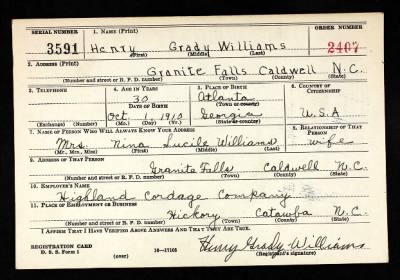 SERIAL NUMBER 1. NAME (Print) ORDER NUMBER
3591 Henry Grady Williams 2407
(First) (Middle) (Last)
2. ADDRESS (Print)
Granite Falls Caldwell N.C.
(Number and street or R. F. D. number) (Town) (County) (State)
3. TELEPHONE 4. AGE IN YEARS 5. PLACE OF BIRTH 6. COUNTRY OF CITIZENSHIP
30 Atlanta
DATE OF BIRTH (Town or county)
Oct 1, 1910 Georgia U.S.A
(Exchange) (Number) (Mo.) (Day) (Yr.) (State or country)
7. NAME OF PERSON WHO WILL ALWAYS KNOW YOUR ADDRESS 8. RELATIONSHIP OF THAT PERSON
Mrs. Nina Lucile Williams wife
(Mr., Mrs., Miss) (First) (Middle) (Last)
9. ADDRESS OF THAT PERSON
Granite Falls Caldwell N.C.
(Number and street or R. F. D. number) (Town) (County) (State)
10. EMPLOYER'S NAME
Highland Cordage Company
11. PLACE OF EMPLOYMENT OR BUSINESS
Hickory Catawba N.C.
(Number and street or R. F. D. number) (Town) (County) (State)
I AFFIRM THAT I HAVE VERIFIED ABOVE ANSWERS AND THAT THEY ARE TRUE.
REGISTRATION CARD Henry Grady Williams
D. S. S. Form 1 (over) 16—17105 (Registrant's signature)